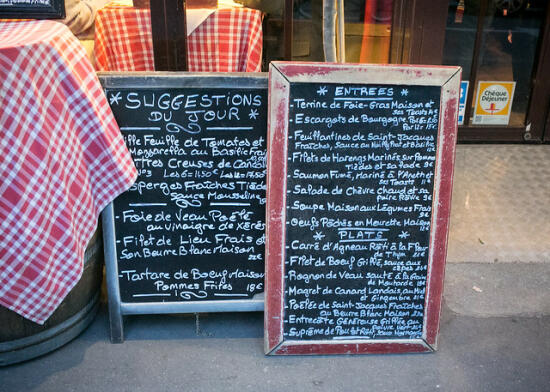 * SUGGESTIONS
DU JOUR *
Feuille de Tomates et
Mozzarella au Basilic
Creuses de
Les 6= 11,50€ Les
Asperges Fraîches Tiède
Sauce Mousseline
Foie de Veau Poêlé
au Vinaigre de XÉRÈS
Filet de Lieu Frais et
Son Beurre Blanc Maison
22€
Tartare de Boeuf Maison
Pommes Frites 18€
* ENTREES *
- Terrine de Foie-Gras Maison et
ses Toasts
- Escargots de Bourgogne
- Feuillantines de Saint-Jacques
Fraîches, Sauce au Noilly Prat et Basilic
- Filets de Harengs Marinés sur Pomme
Tièdes et sa Salade
- Saumon Fumé, Mariné à l'Aneth et
ses Toasts
- Salade de Chèvre Chaud et sa
Poire Rôtie 9€
- Soupe Maison aux Légumes Frais
- Oeufs Pochés en Meurette Maison
* PLATS *
- Carré d'Agneau Rôti à la Fleur
de Thym
- Filet de Boeuf Grillé, Sauce aux
- Rognon de Veau Sauté à la Graine
de Moutarde
- Magret de Canard Landais, au Miel
et Gingembre
- Poêlée de Saint-Jacques Fraîches
au Beurre Blanc Maison
- Entrecôte Généreuse Grillée au
Poivre Vert
- Suprême de Poulet Rôti, Sauce Normande
Chèque
Déjeuner